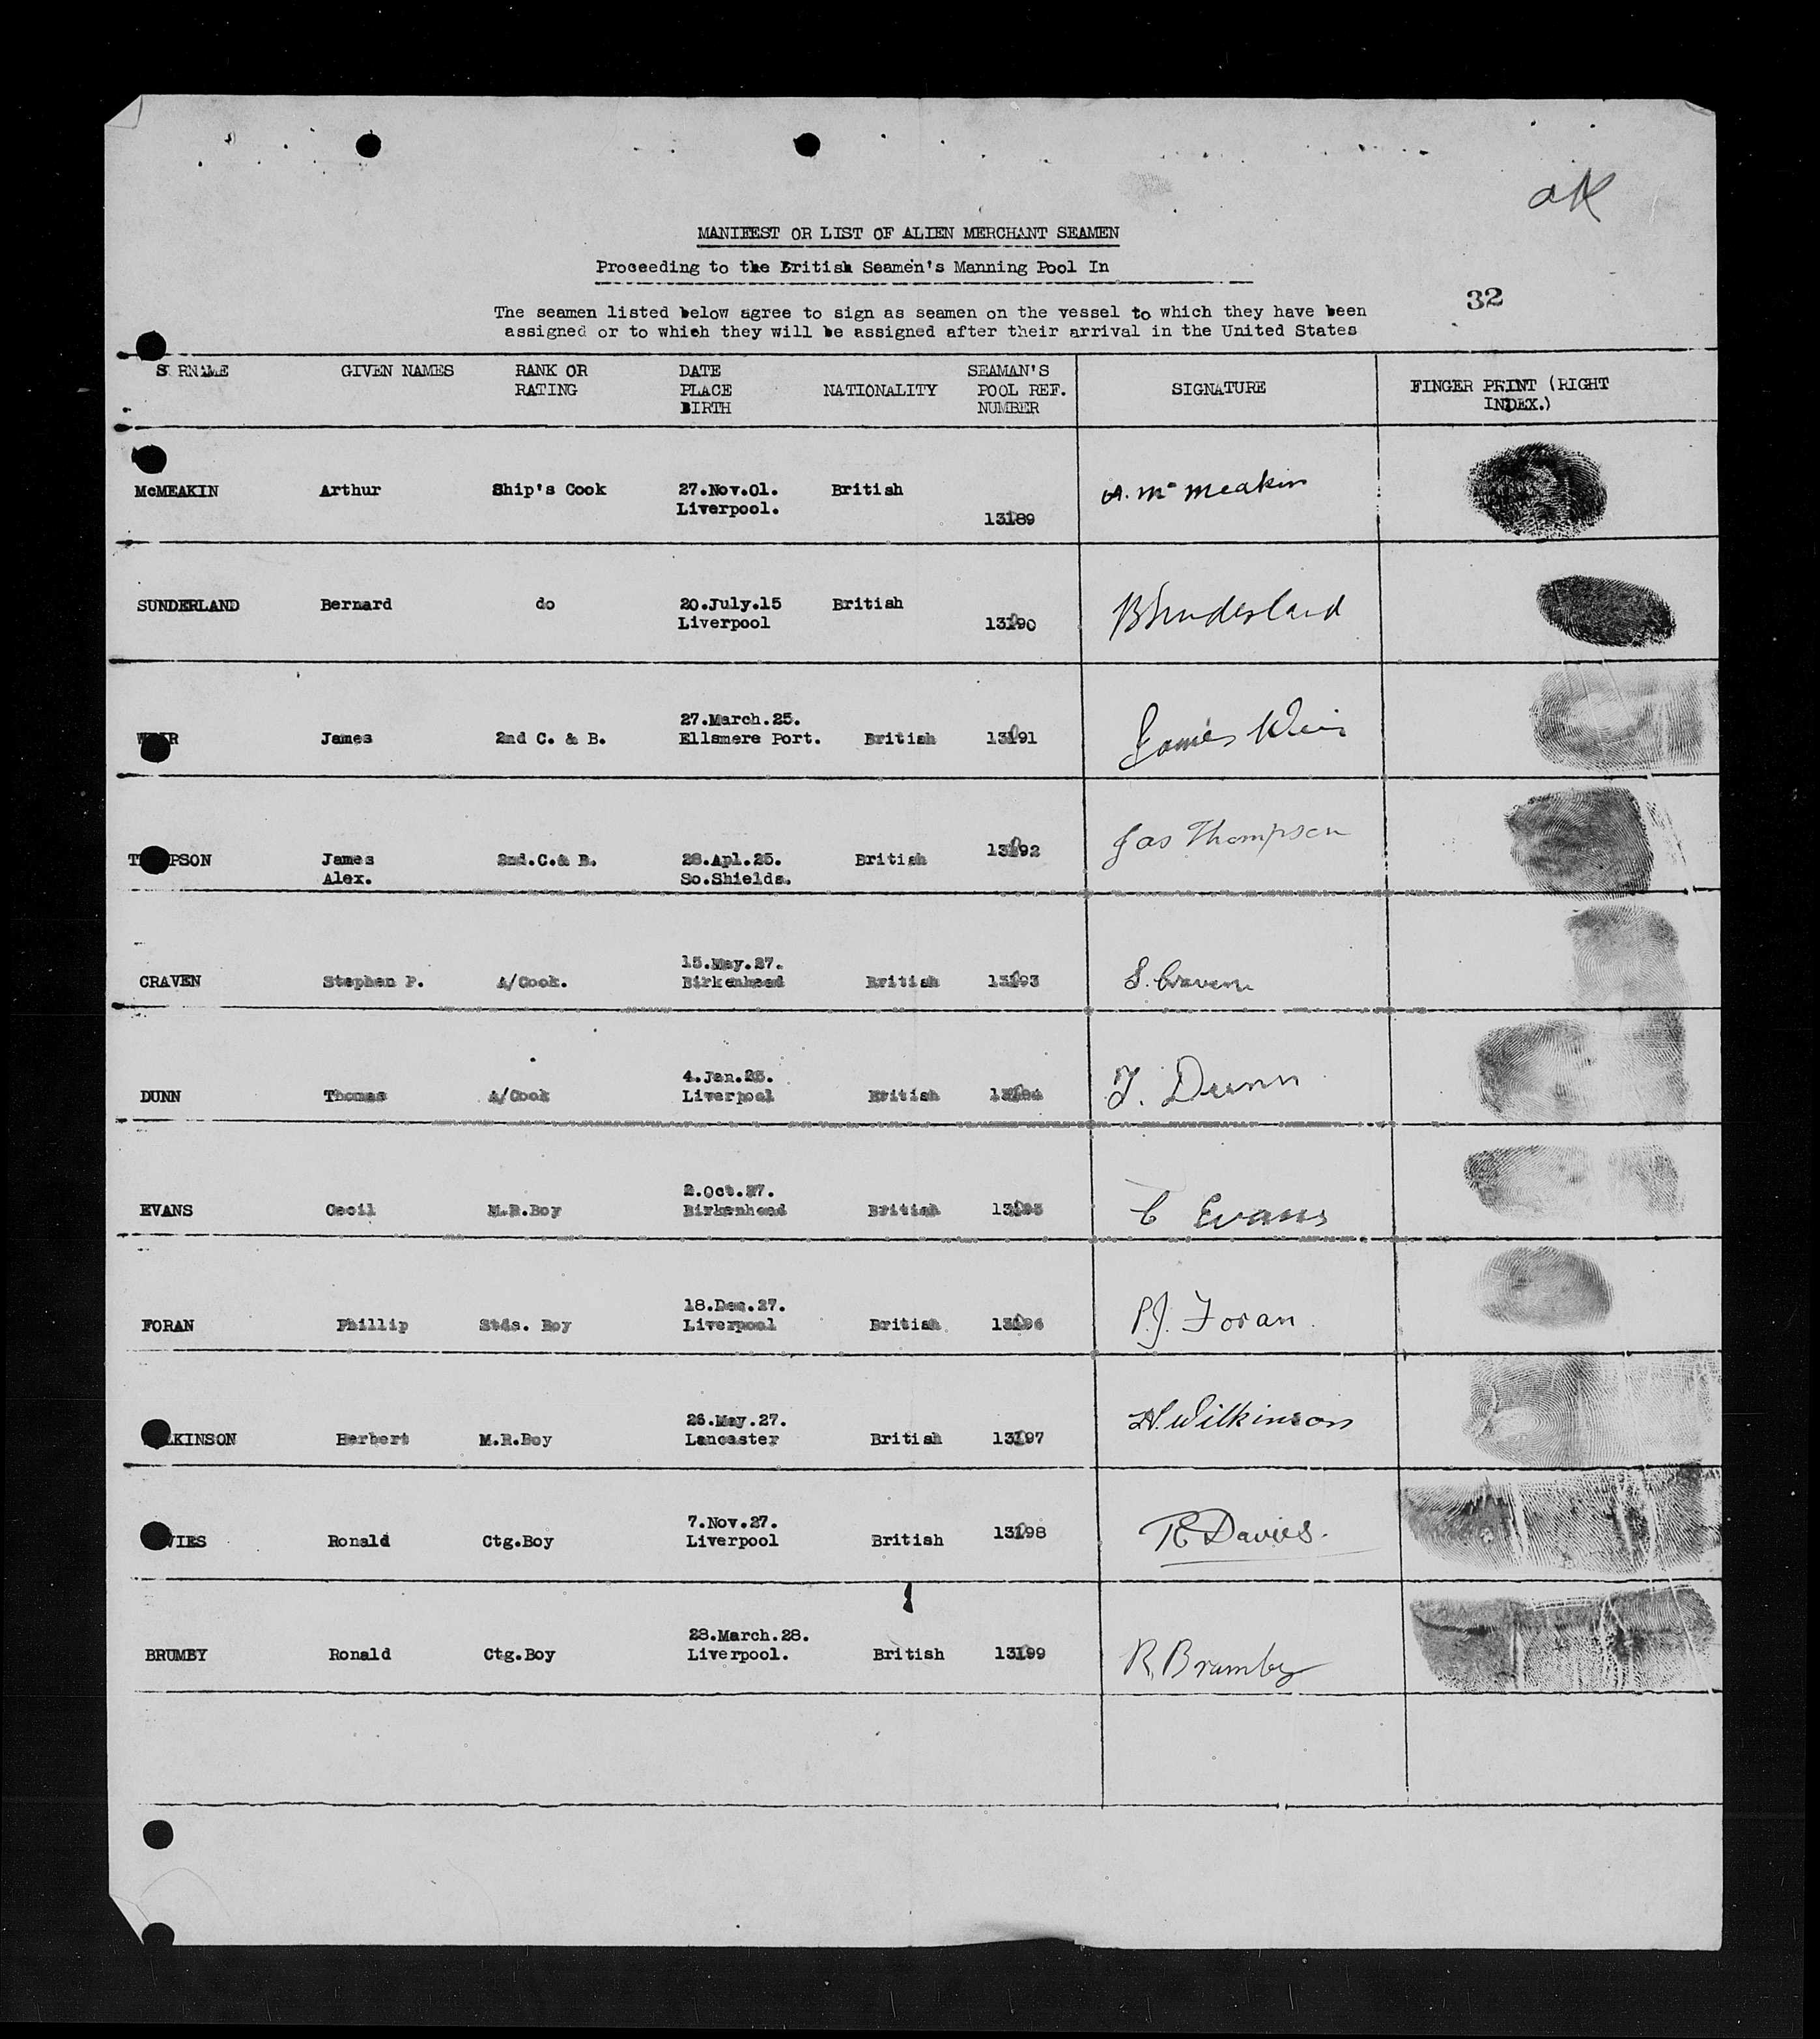 OK
MANIFEST OR LIST OF ALIEN MERCHANT SEAMEN
Proceeding to the British Seamen's Manning Pool In
32
The seamen listed below agree to sign as seamen on the vessel to which they have been
assigned or to which they will be assigned after their arrival in the United States
S RNAME GIVEN NAMES RANK OR RATING DATE PLACE BIRTH NATIONALITY SEAMAN'S POOL REF. NUMBER SIGNATURE FINGER PRINT (RIGHT INDEX.)
McMEAKIN Arthur Ship's Cook 27.Nov.01. Liverpool. British 13189 A. McMeakin
SUNDERLAND Bernard do 20.July.15 Liverpool British 13190 B Sunderland
James 2nd C. & B. 27.March.25. Ellsmere Port. British 13191 James Weir
T PSON James Alex. 2nd.C.& B. 28.Apl.25. So.Shields. British 13192 Jas Thompson
CRAVEN Stephen P. A/Cook. 15.May.27. Birkenhead British 13193 S. Craven
DUNN Thomas A/Cook 4.Jan. Liverpool British 13194 T. Dunn
EVANS Cecil M.R.Boy 2.Oct.27. Birkenhead British 13195 C Evans
FORAN Phillip Stds. Boy 18.Dec.27. Liverpool British 13196 P.J. Foran.
LKINSON Herbert M.R.Boy 26.May.27. Lancaster British 13197 H. Wilkinson
VIES Ronald Ctg.Boy 7.Nov.27. Liverpool British 13198 R Davies.
BRUMBY Ronald Ctg.Boy 28.March.28. Liverpool. British 13199 R. Brumby